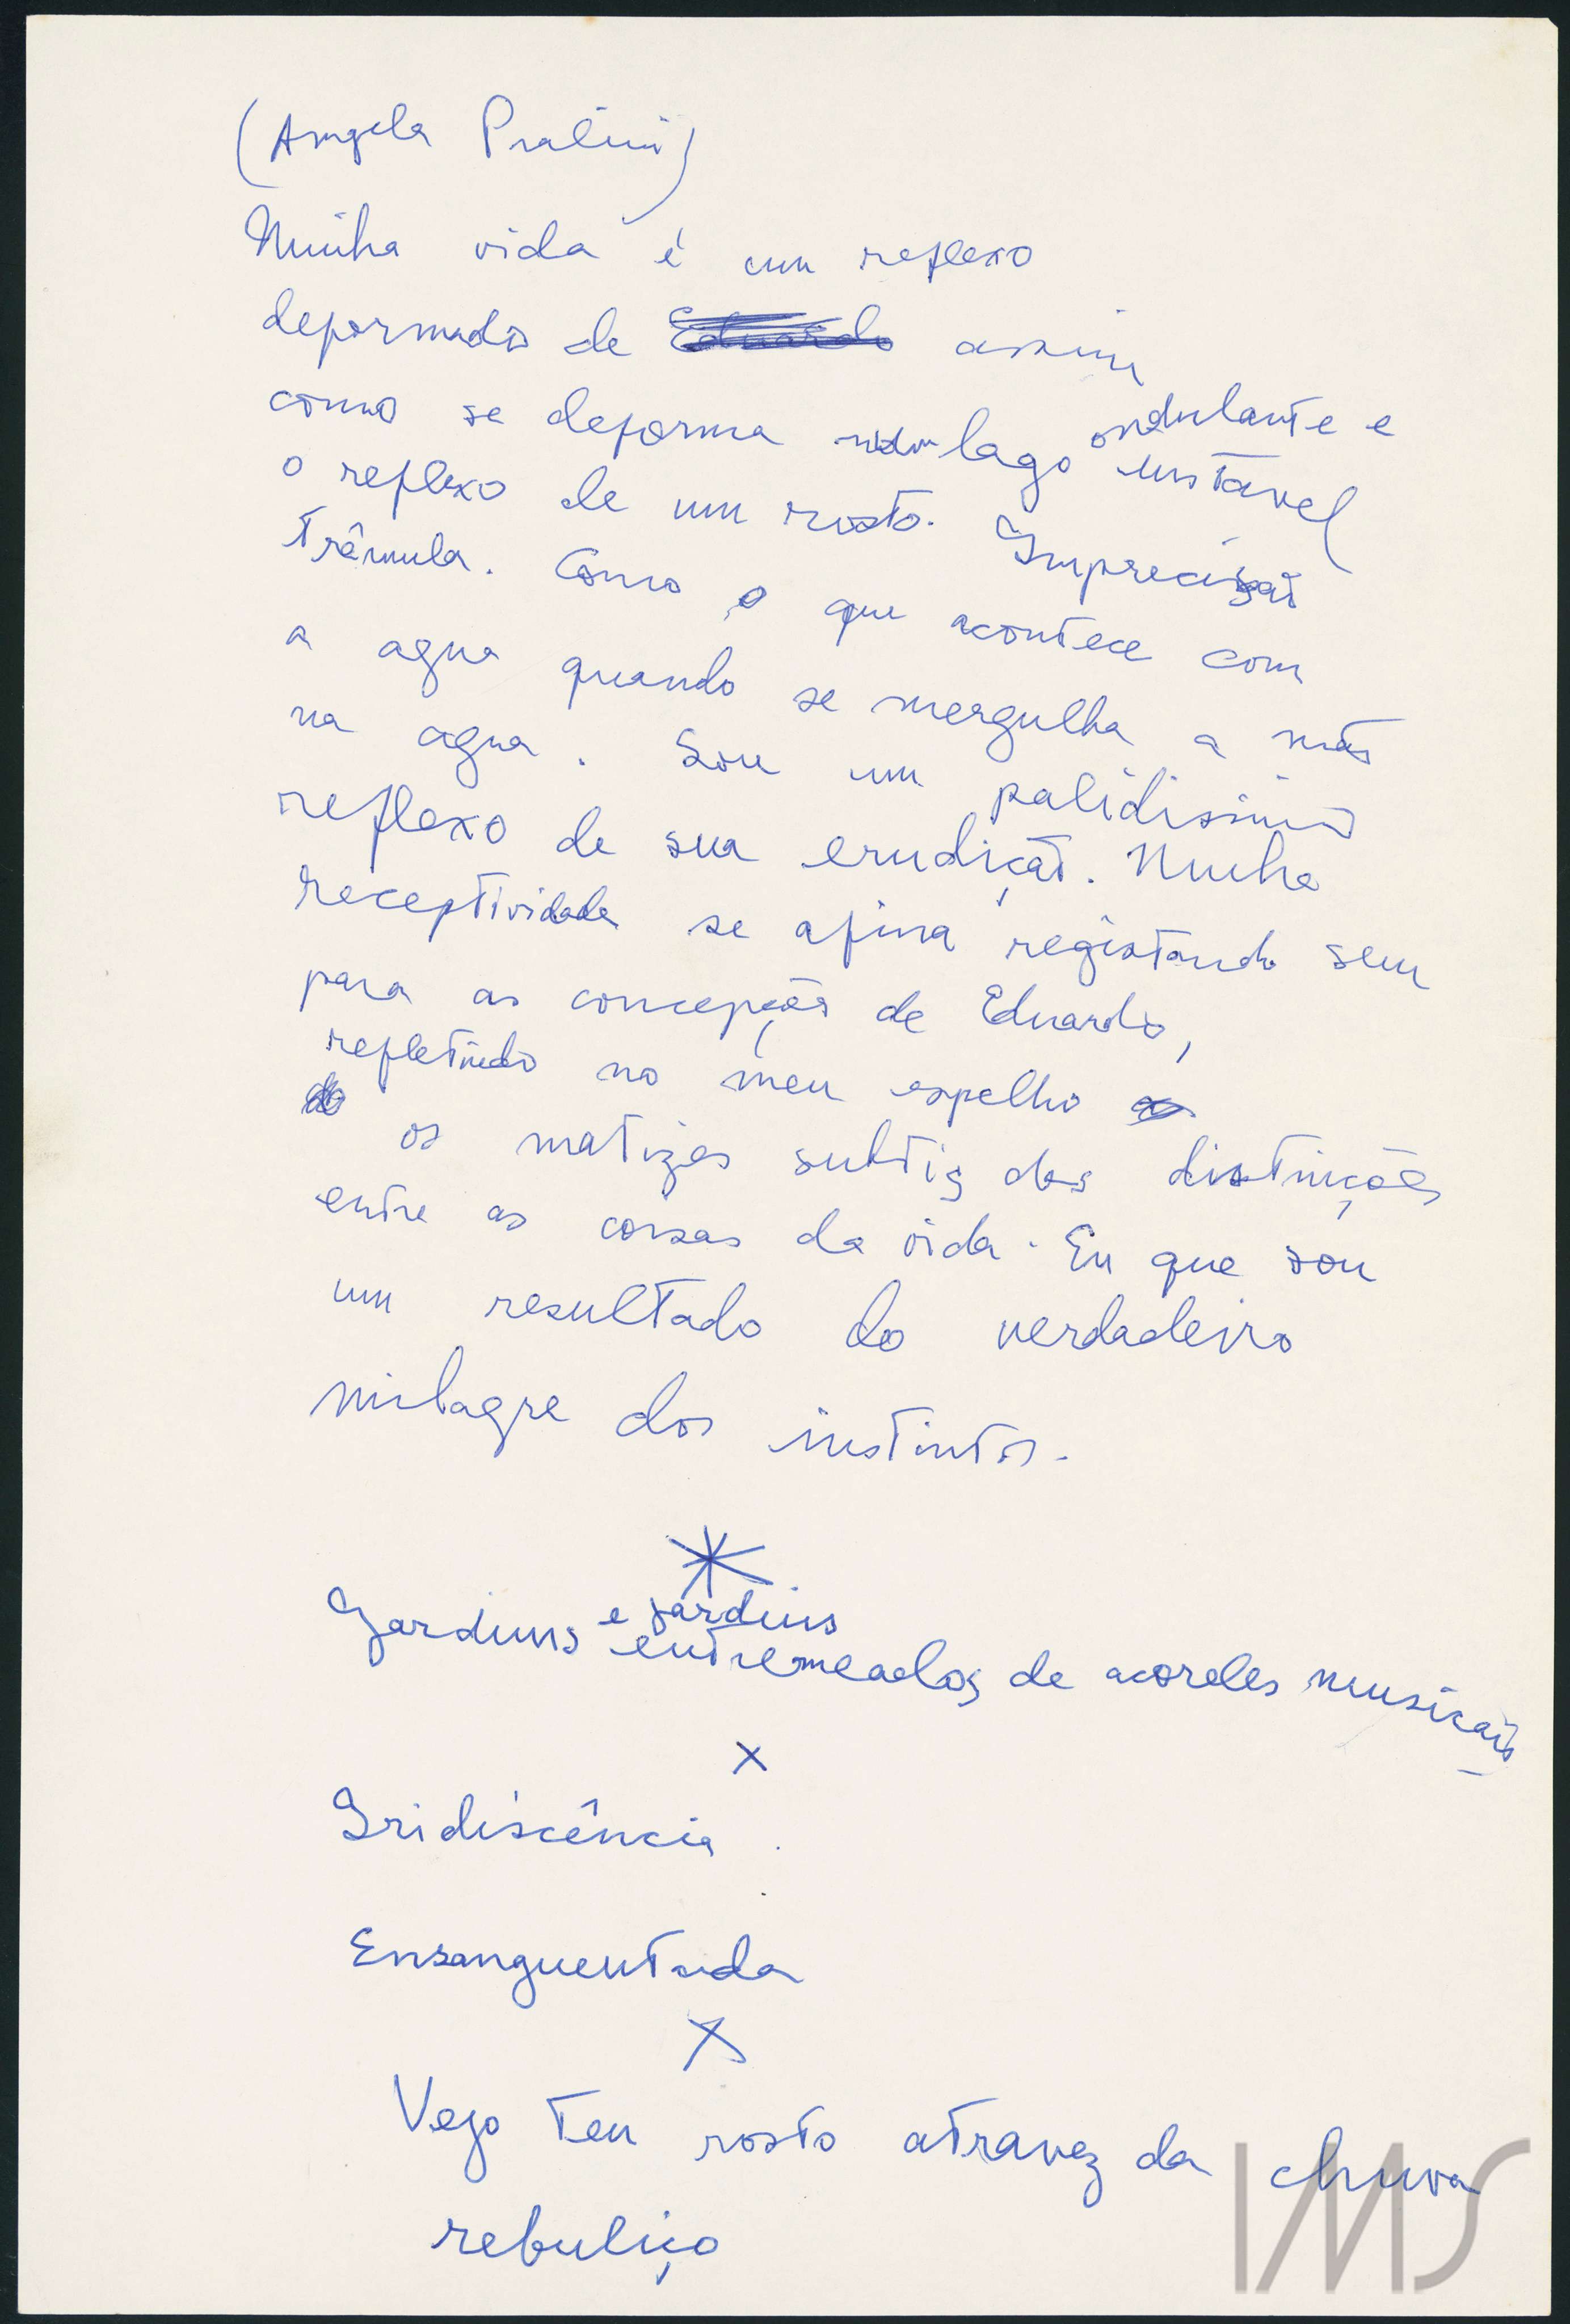 (Angela Pralini)
Minha vida é um reflexo
deformado de Eduardo assim
como se deforma num lago ondulante e
instavel
o reflexo de um rosto. Imprecisão
trêmula. Como o que acontece com
a agua quando se mergulha a mão
na agua. Sou um palidissimo
reflexo de sua erudição. Minha
receptividade se afina registando sem
para as concepções de Eduardo,
refletindo no meu espelho
os matizes subtis das distinções
entre as coisas da vida. Eu que sou
um resultado do verdadeiro
milagre dos instintos.
*
Jardins e jardins
entremeados de acordes musicais
x
Iridiscência.
Ensanguentada
x
Vejo teu rosto atravez da chuva
rebuliço
IMS